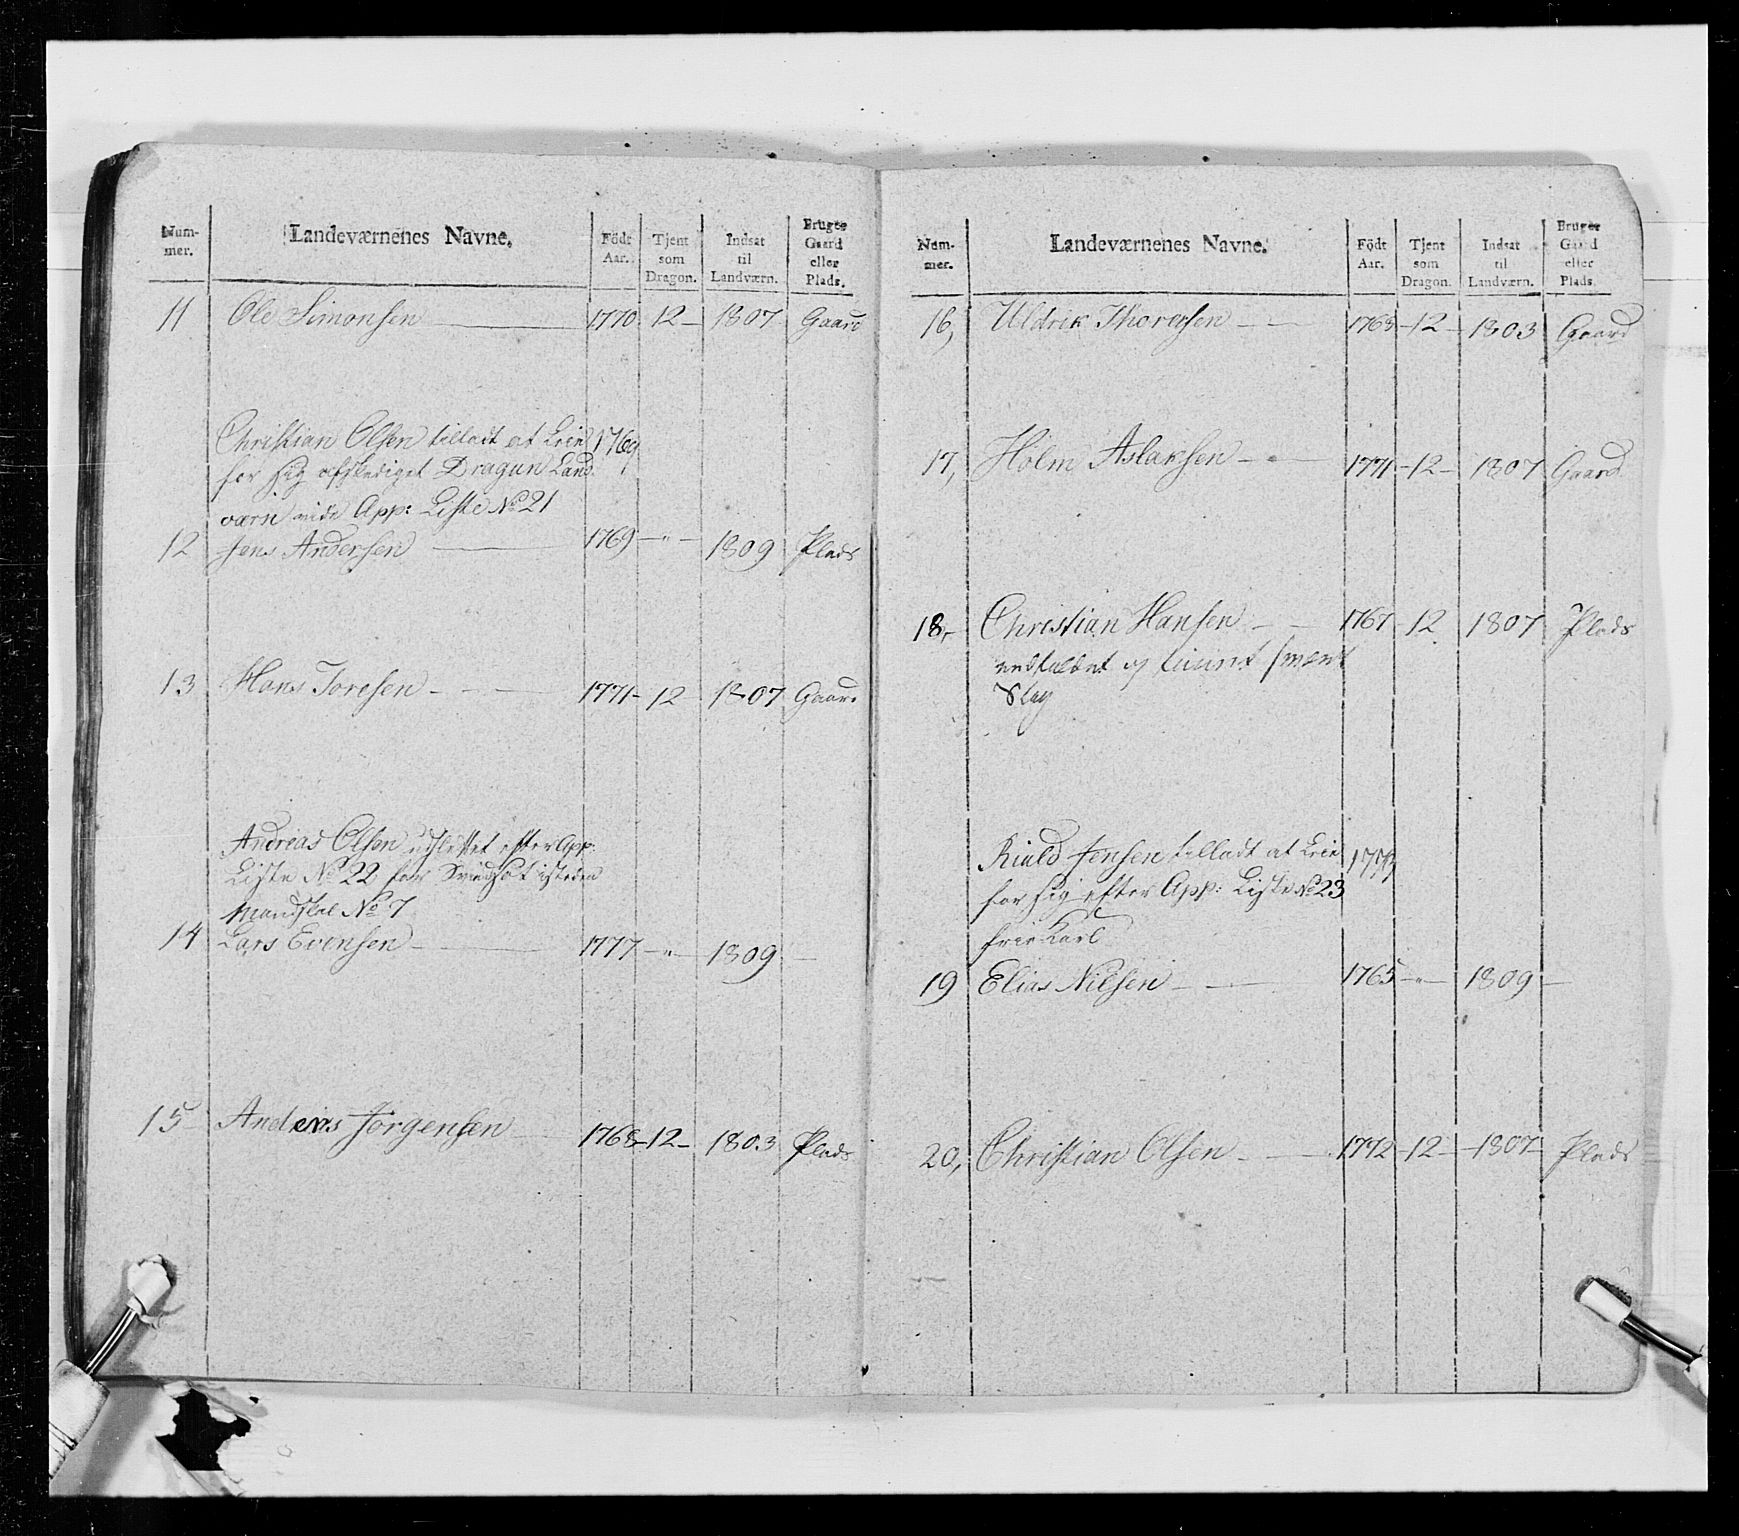 Num-
mer. Landeværnenes Navne. Födt
Aar. Tjent
som
Dragon. Indsat
til
Landværn. Bruger
Gaard
eller
Plads.
11 Ole Simonsen 1770 12 1807 Gaard
Christian Olsen tilladt at Leie 1769
for sig afskediget Dragun Land
værn vide App: Liste No 21
12 Jens Andersen 1769 - " - 1809 Plads
13 Hans Toresen 1771 12 1807 Gaard
Andreas Olsen udslettet efter App:
Liste No 22 for isteden
Mandskal No 7
14 Lars Evensen 1777 - " - 1809 -
15 Anders Jörgensen 1768 12 1803 Plads
Num-
mer. Landeværnenes Navne. Födt
Aar. Tjent
som
Dragon. Indsat
til
Landværn. Bruger
Gaard
eller
Plads.
16, Uldrik Thoresen 1768 12 1803 Gaard
17, Holm Aslaksen 1771 12 1807 Gaard
18, Christian Hansen 1767 12 1807 Plads
og
Slag
Jensen tilladt at Leie
for sig efter App: Liste No 23
frie Karl
19 Elias Nilsen 1765 - " - 1809 -
20, Christian Olsen 1772 12 1807 Plads